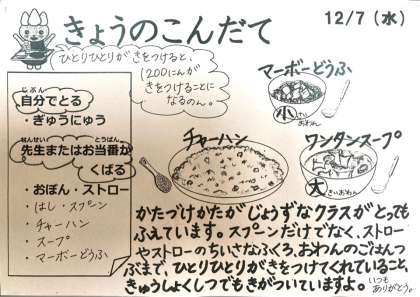 きょうのこんだて
12/7（水）
ひとりひとりがきをつけると、
1200にんが
きをつけることに
なるのん。
じぶん
自分でとる
・ぎゅうにゅう
せんせい とうばん
先生またはお当番が
くばる
・おぼん・ストロー
・はし・スプーン
・チャーハン
・スープ
・マーボーどうふ
マーボーどうふ
小さい
おわん
チャーハン
ワンタンスープ
大きいおわん
かたづけかたがじょうずなクラスがとっても
ふえています。スプーンだけでなく、ストロー
やストローのちいさなふくろ、おわんのごはんつ
ぶまで、ひとりひとりがきをつけてくれていること、
きゅうしょくしつでもきがついていますよ。いつも
ありがとう。